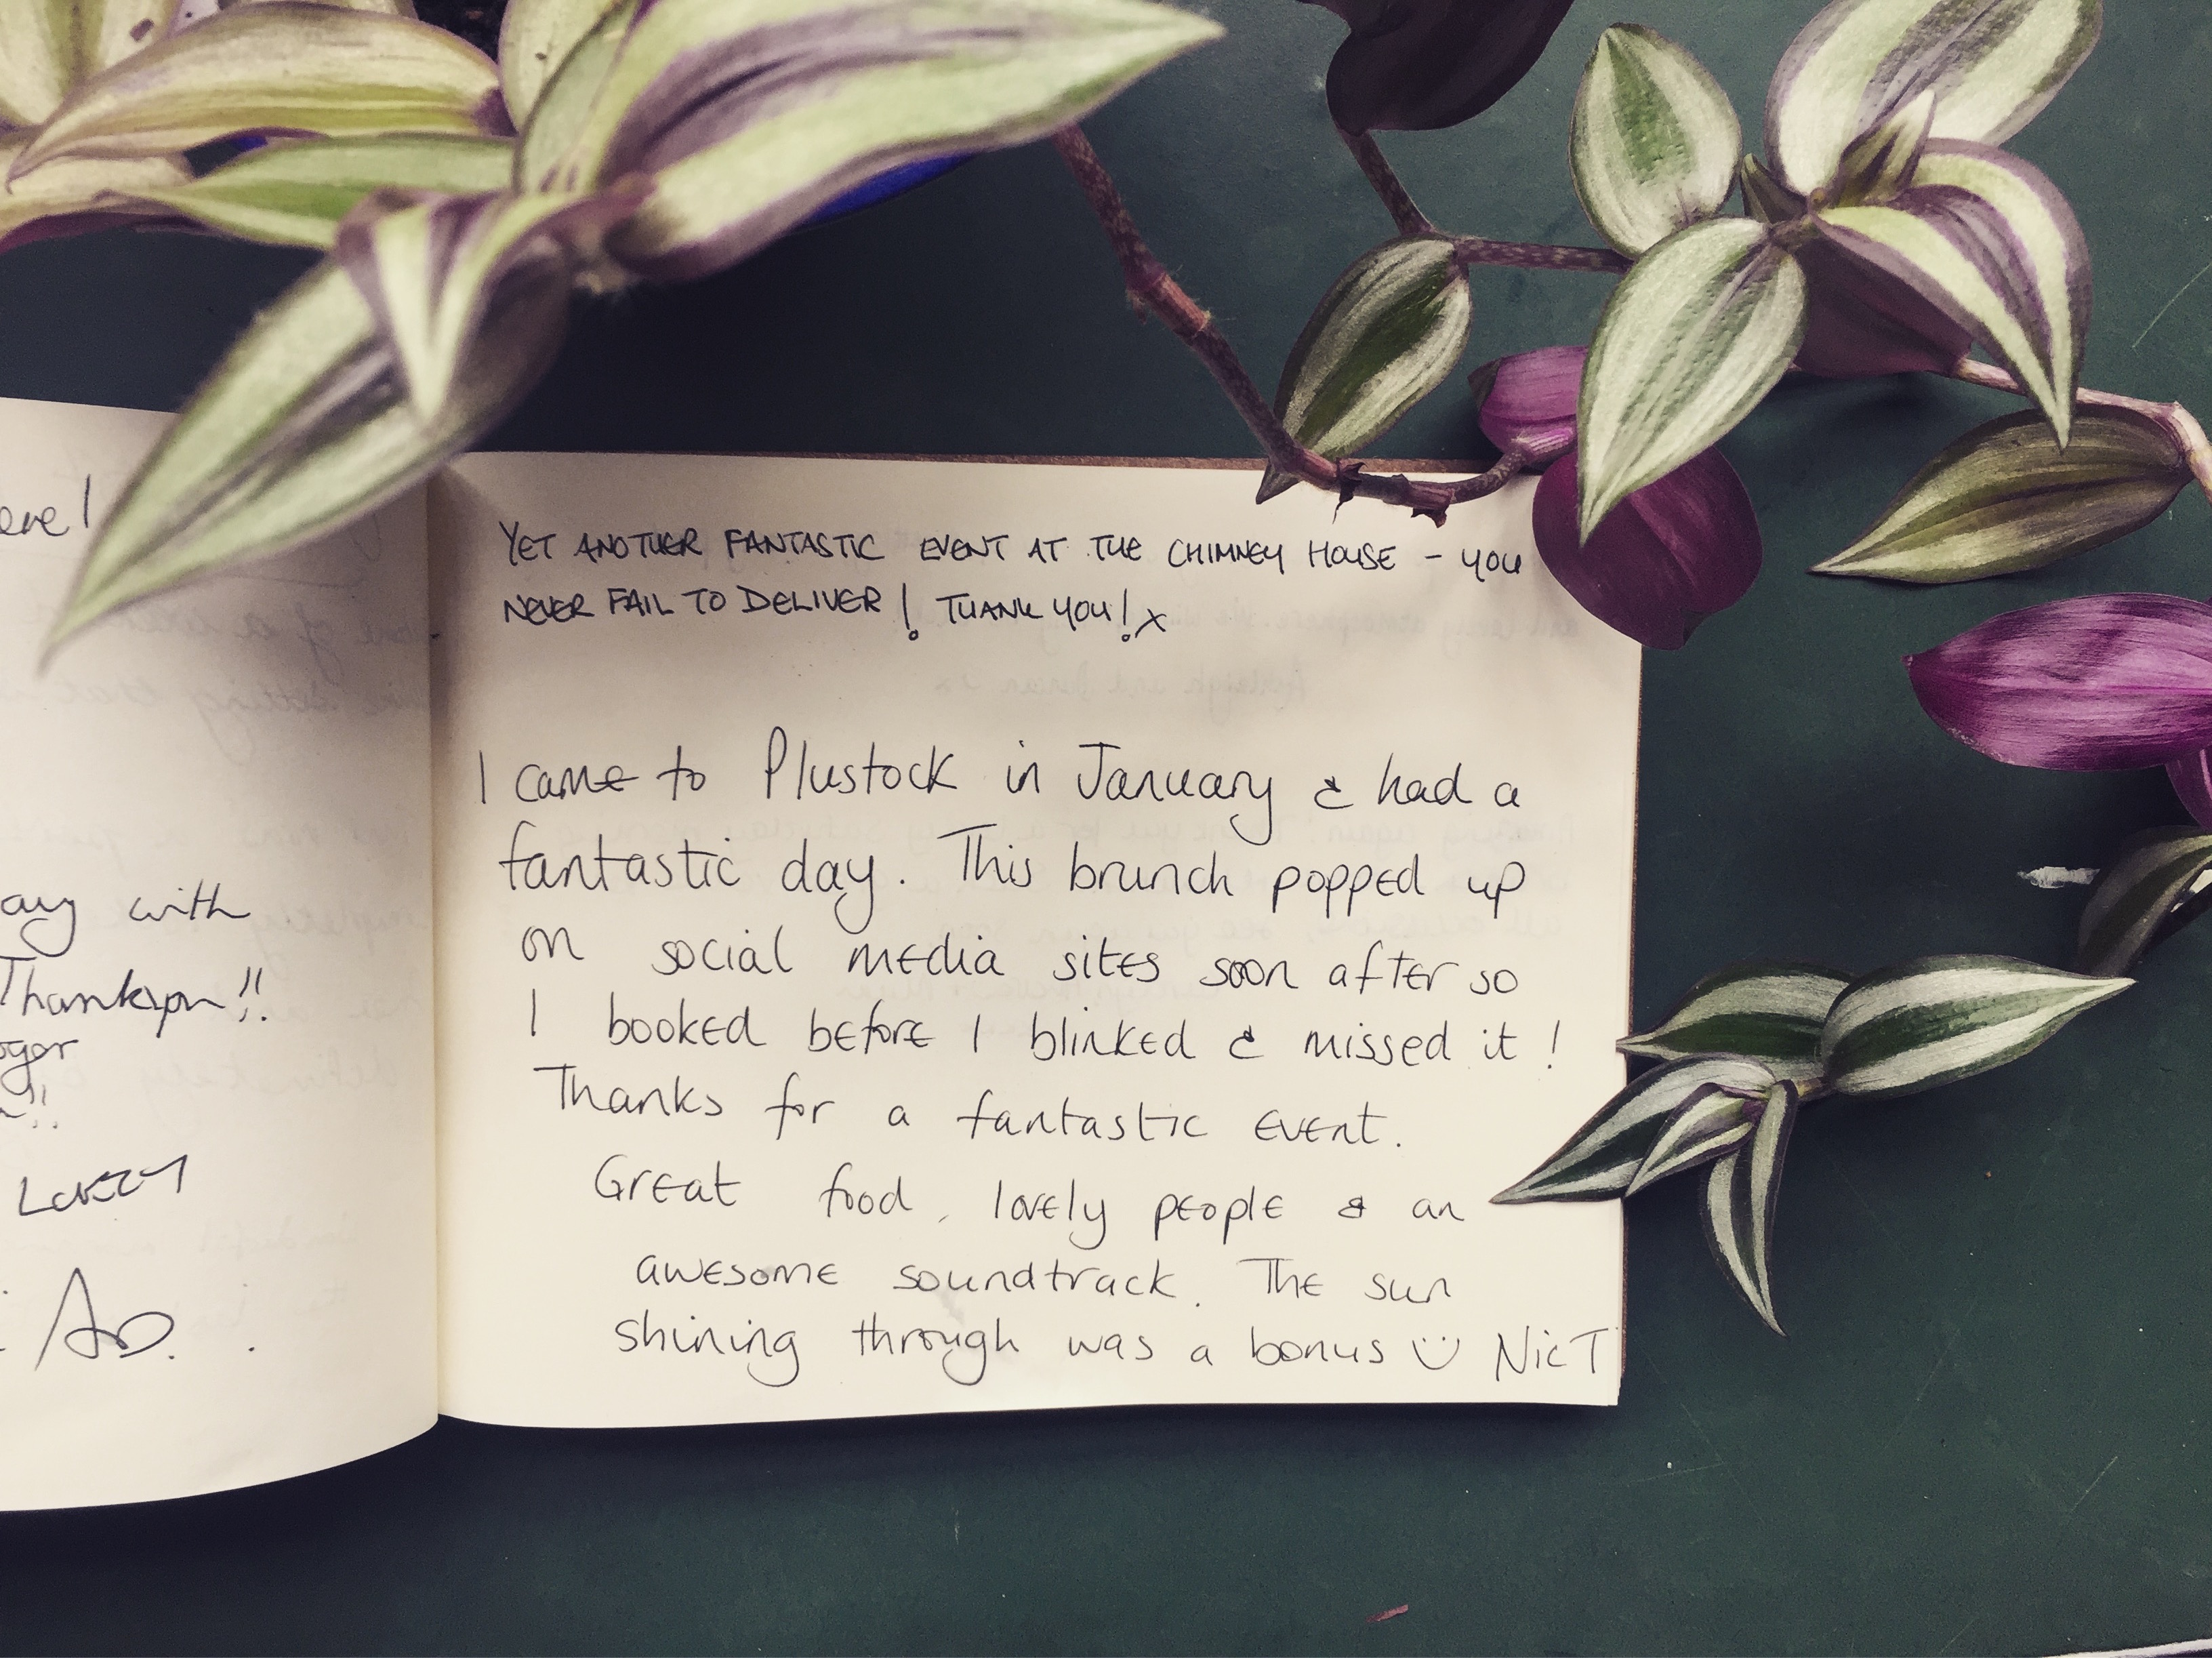 ere!
ay with
Thankyou!!
YET ANOTHER FANTASTIC EVENT AT THE CHIMNEY HOUSE - YOU
NEVER FAIL TO DELIVER! THANK YOU! x
I came to Plustock in January & had a
fantastic day. This brunch popped up
on social media sites soon after so
I booked before I blinked & missed it!
Thanks for a fantastic event.
Great food, lovely people & an
awesome soundtrack. The sun
shining through was a bonus ☺ Nic T